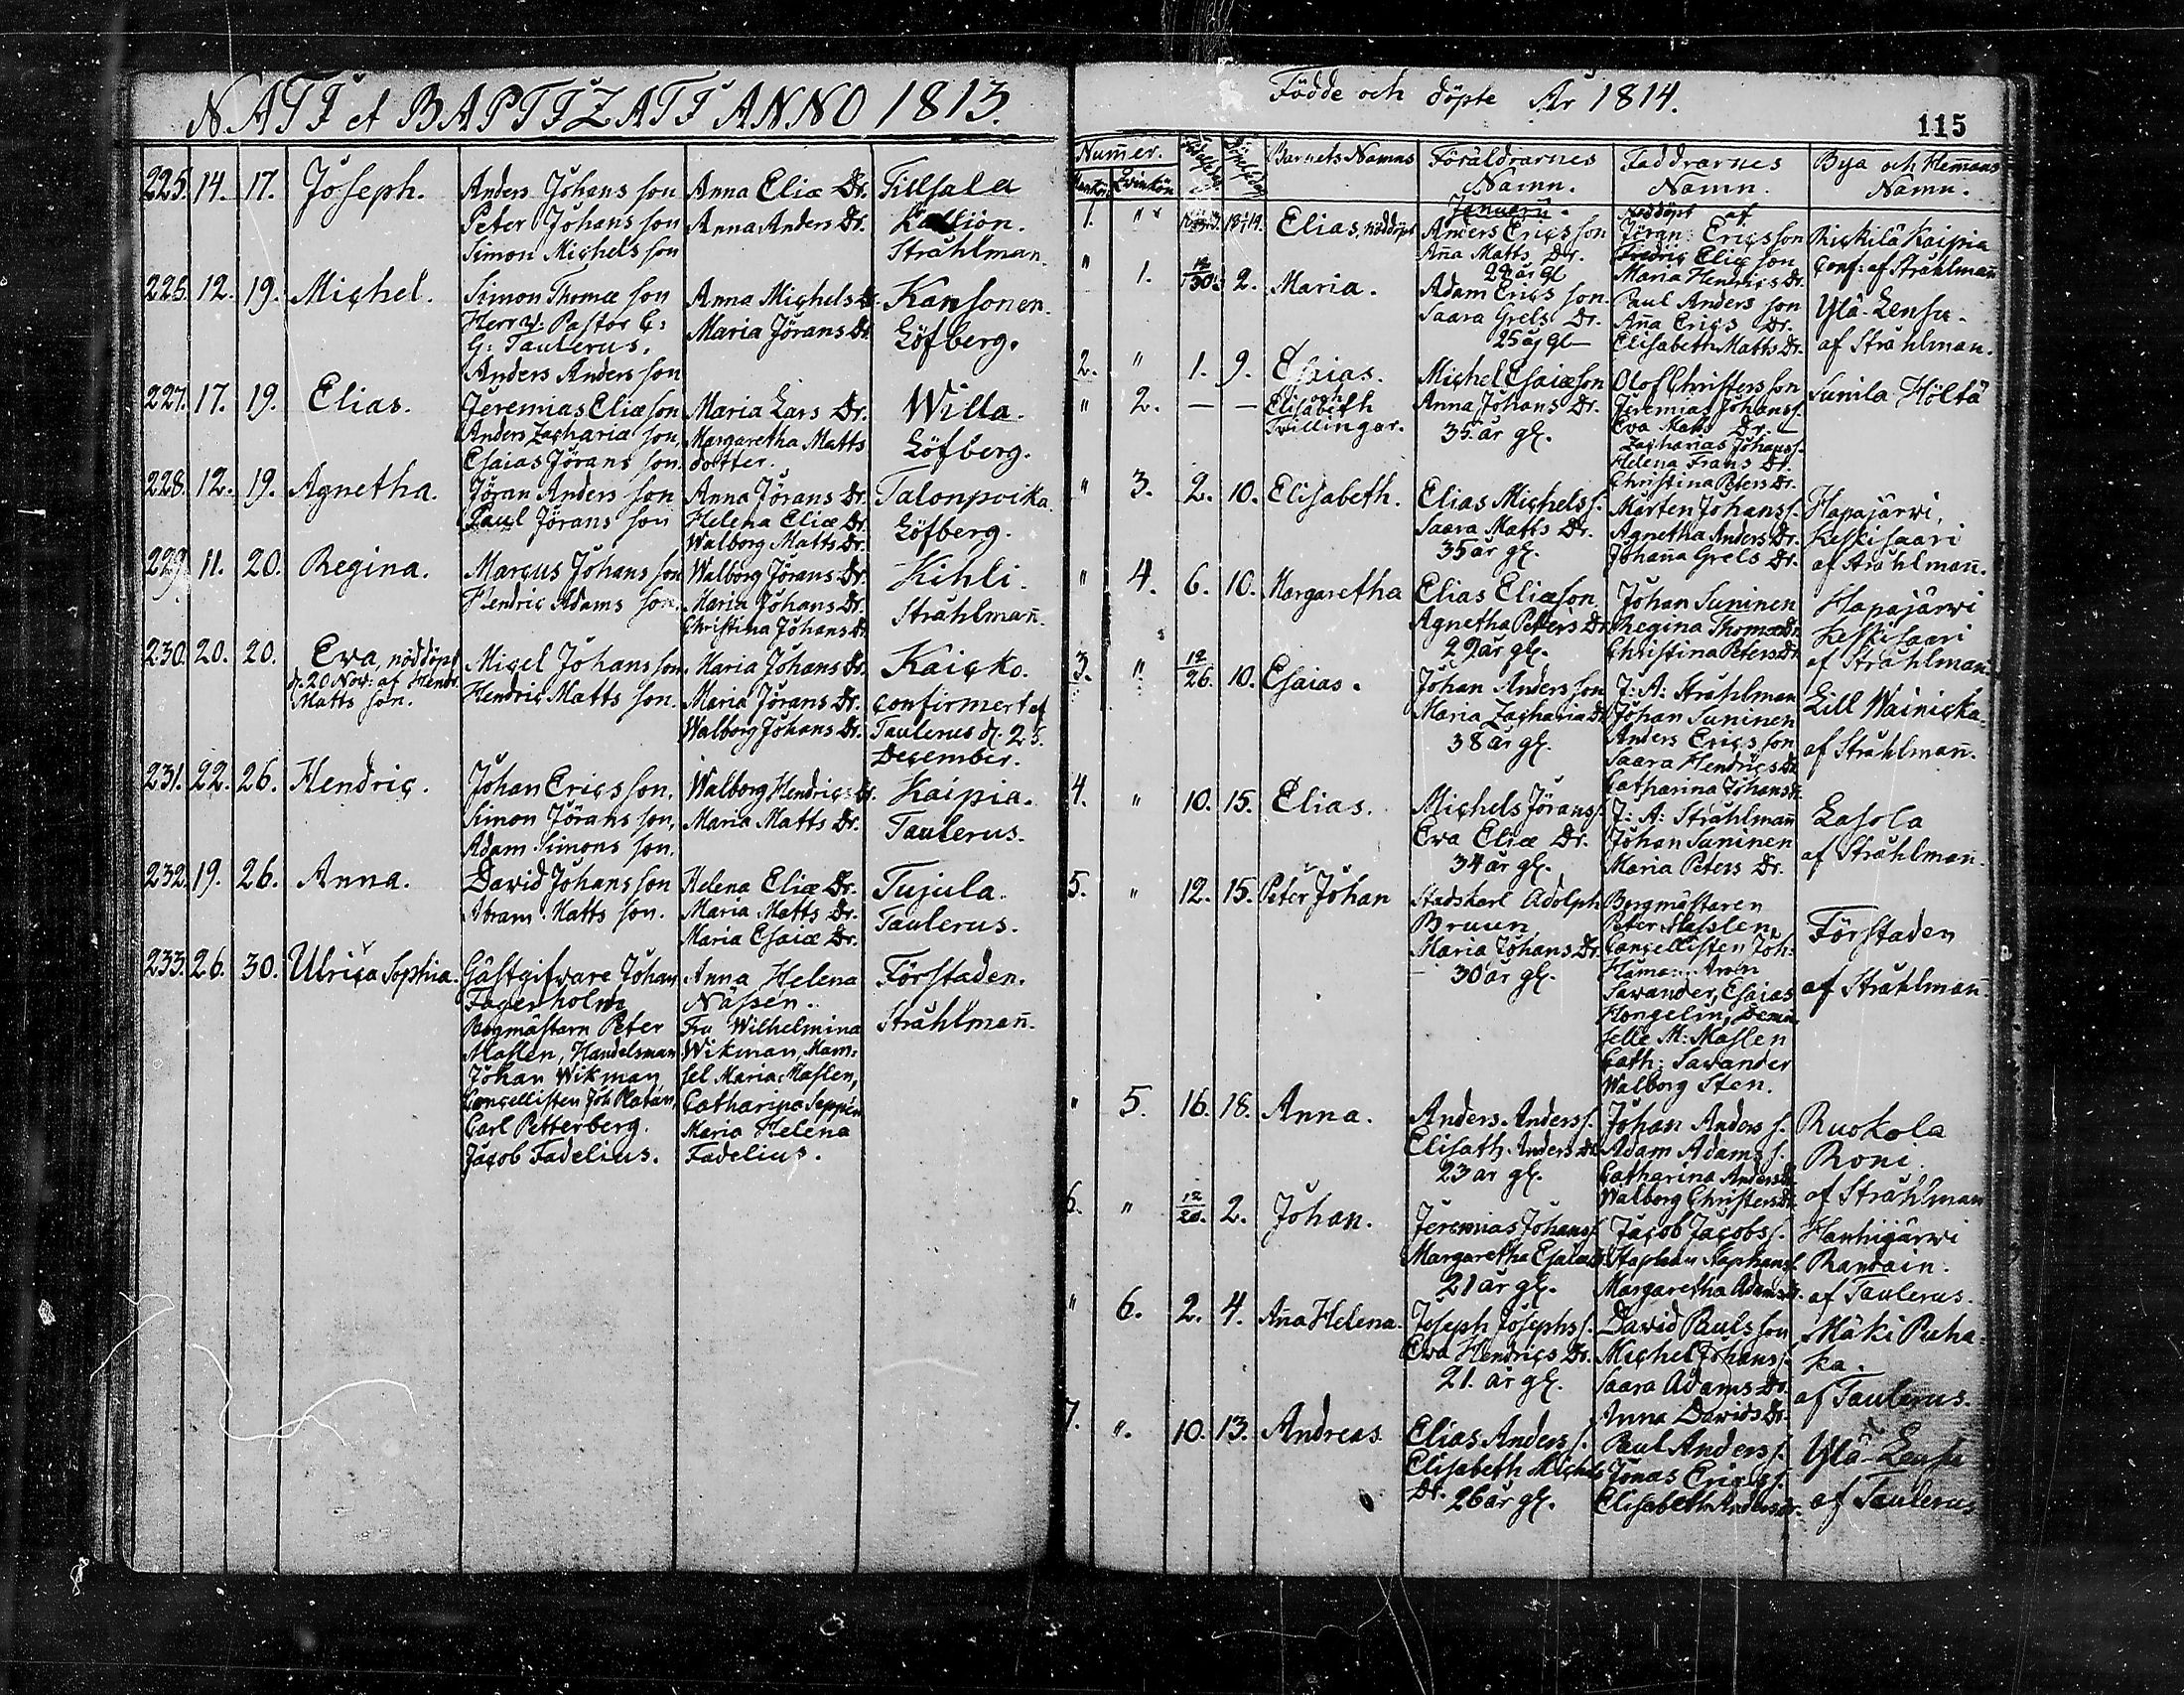 NATI et BAPTIZATI ANNO 1813.
225. 14. 17. Joseph. Anders Johans son Anna Eliæ Dr. Tillsala
Peter Johans son Anna Anders Dr. Kallion.
Simon Michels son Stråhlman.
225. 12. 19. Michel. Simon Thomæ son Anna Michels Dr. Kansonen.
Herr V: Pastor C: Maria Jörans Dr. Löfberg.
G: Taulerus.
Anders Anders son
227. 17. 19. Elias. Jeremias Eliæ son Maria Lars Dr. Willa.
Anders Zachariæ son Margaretha Matts Löfberg.
Esaias Jörans son. dotter.
228. 12. 19. Agnetha. Jöran Anders son Anna Jörans Dr. Talonpoika.
Paul Jörans son Helena Eliæ Dr. Löfberg.
Walborg Matts Dr.
229. 11. 20. Regina. Marcus Johans son Walborg Jörans Dr. Kihli.
Hendric Adams son. Maria Johans Dr. Stråhlman̄.
Christina Johans Dr
230. 20. 20. Eva, nöddöpt Micel Johans son. Maria Johans Dr. Kaicko.
d. 20 Nov: af Hendr. Hendric Matts son. Maria Jörans Dr. confirmert af
Matts son. Walborg Johans Dr. Taulerus d. 25.
December.
231. 22. 26. Hendric. Johan Erics son. Walborg Hendrics Dr. Kaipia.
Simon Jörans son, Maria Matts Dr. Taulerus.
Adam Simons son.
232. 19. 26. Anna. David Johans son Helena Eliæ Dr. Tujula.
Abram Matts son. Maria Matts Dr. Taulerus.
Maria Esaiæ Dr.
233. 26. 30. Ulrica Sophia. Gästgifvare Johan Anna Helena Förstaden.
Fagerholm Nässen. Stråhlman̄.
Borgmästarn Peter Fru Wilhelmina
Maslen, Handelsman Wikman, Mam:
Johan Wikman sel Maria Maslen,
Cancellisten Joh Platan, Catharina Seppén
Carl Petterberg. Maria Helena
Jacob Fadelius. Fadelius.
Födde och döpte År 1814.
115
Num̄er. Födelsedag Döpelsedag Barnets Namns Föräldrarnes Faddrarnes Bya och Hemans
Mankön Qvinkön Namn. Namn. Namn.
Januarii. Nöddöpt af
1. " Elias, nöddöpt Anders Erics son Jöran Ericsson Kickilä Kaipia
An̄a Matts Dr. Fredric Eliæ son Conf: af Stråhlman̄
28 år gl Maria Hendrics Dr.
" 1. 12/30. 2. Maria. Adam Erics son. Paul Anders son Ylä-Lensu.
Saara Grels Dr. An̄a Erics Dr. af Stråhlman.
25 år gl Elisabeth Matts Dr.
2. " 1. 9. Esaias. Michel Esaiæson Olof Christers son Sunila Höltä
och
" 2. — — Elisabeth Anna Johans Dr. Jeremias Johans s.
Tvillingar. 35. år gl. Eva Matts Dr.
Zacharias Johans s.
Helena Frans Dr.
Christina Peters Dr.
" 3. 2. 10. Elisabeth. Elias Michels s. Mårten Johans s. Hapajärwi,
Saara Matts Dr. Agnetha Anders Dr. Keskisaari
35 år gl. Johan̄a Grels Dr. af Stråhlman̄.
" 4. 6. 10. Margaretha Elias Eliæson Johan Suninen Hapajärwi
Agnetha Peters Dr Regina Thomæ Dr. Keskisaari
29 år gl. Christina Peters Dr. af Stråhlman̄
3. " 12/26. 10. Esaias. Johan Anders son J: A: Stråhlman Lill Wainicka.
Maria Zacharia Dr Johan Suninen af Stråhlman̄.
38 år gl. Anders Erics son
Saara Hendrics Dr
Catharina Johans Dr.
4. " 10. 15. Elias. Michels Jörans s. J: A: Stråhlman̄ Lasola
Eva Eliæ Dr. Johan Suninen af Stråhlman̄.
34 år gl. Maria Peters Dr.
5. " 12. 15. Peter Johan Stadskarl Adolph Borgmästaren Förstaden
Bruun Peter Maslen, af Stråhlman̄
Maria Johans Dr. Cancellisten Joh:
30 år gl.
Savander, Esaias
Hongelin, Demoi
selle M: Maslen
Cath: Savander
Walborg Sten.
" 5. 16. 18. Anna. Anders Anders s. Johan Anders s. Ruokola
Elisath. Anders Dr. Adam Adams s. Roni.
23 år gl. Catharina Anders Dr. af Stråhlman
Walborg Christers Dr.
6. " 12/20. 2. Johan. Jeremias Johans s. Jacob Jacobs s. Hanhijärwi
Margaretha Esaiæ Dr. Staphan Staphans s. Randain.
21 år gl. Margaretha Adams Dr. af Taulerus.
" 6. 2. 4. An̄a Helena. Joseph Josephs s. David Pauls son Mäki Puha-
Eva Hendrics Dr. Michel Johans s. ka.
21. år gl. Saara Adams Dr. af Taulerus.
Anna Davids Dr.
7. " 10. 13. Andreas Elias Anders s. Paul Anders s. Ylä-Lensu
Elisabeth Michels Jonas Erics s. af Taulerus
Dr. 26 år gl. Elisabeth Anders Dr.